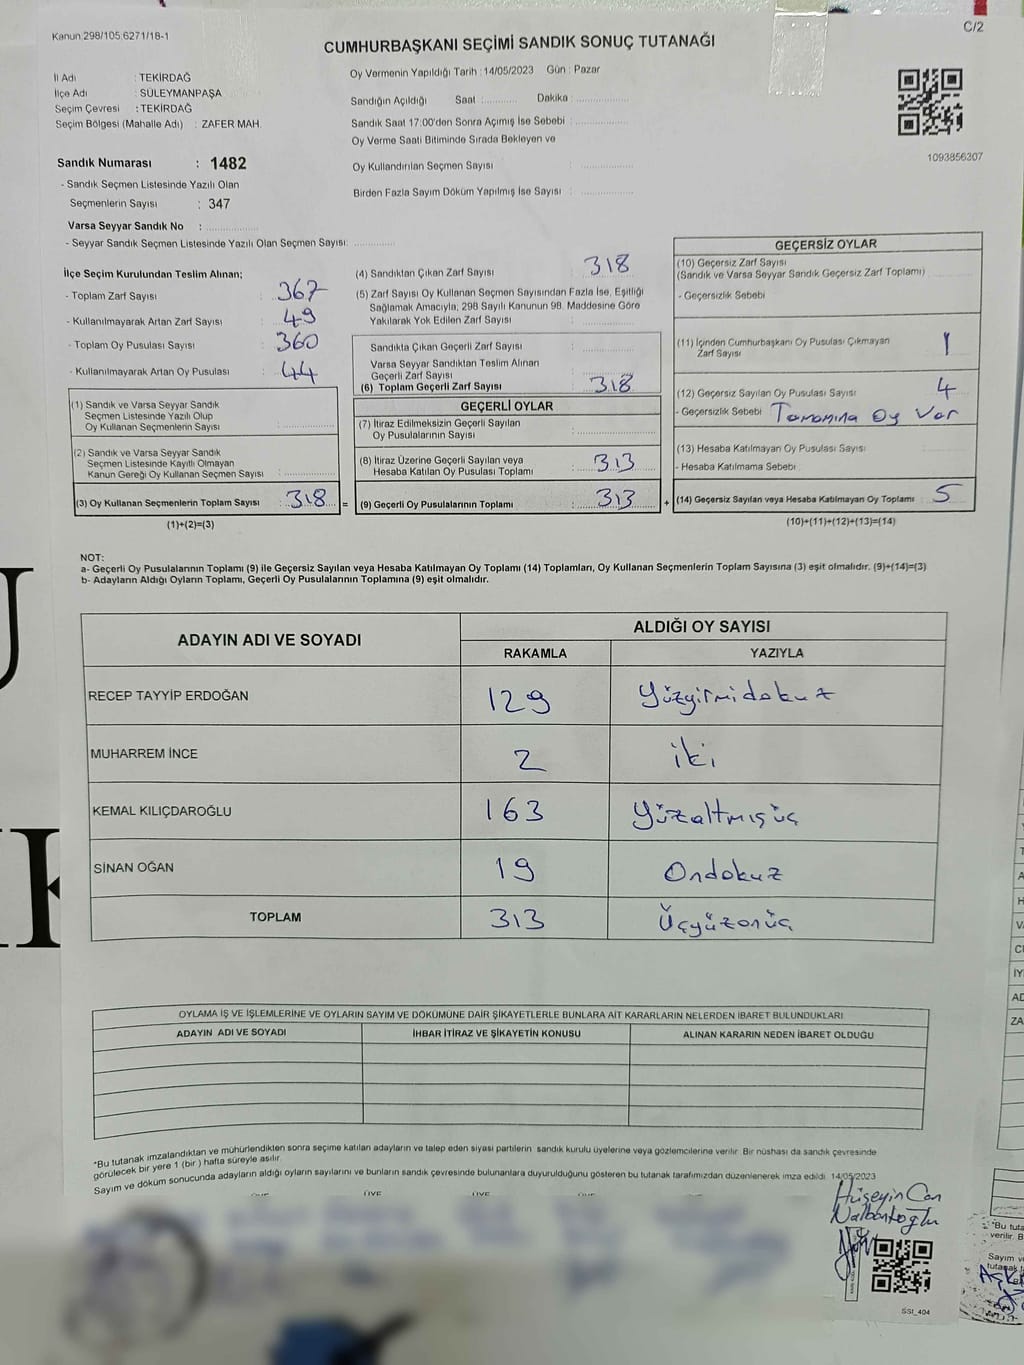 Kanun:298/105.6271/18-1
C/2
CUMHURBAŞKANI SEÇİMİ SANDIK SONUÇ TUTANAĞI
İl Adı : TEKİRDAĞ
İlçe Adı : SÜLEYMANPAŞA
Seçim Çevresi : TEKİRDAĞ
Seçim Bölgesi (Mahalle Adı) : ZAFER MAH.
Oy Vermenin Yapıldığı Tarih : 14/05/2023 Gün : Pazar
Sandığın Açıldığı Saat :............ Dakika :................
Sandık Saat 17:00'den Sonra Açımış İse Sebebi :................
Oy Verme Saati Bitiminde Sırada Bekleyen ve
Oy Kullandırılan Seçmen Sayısı :................
Birden Fazla Sayım Döküm Yapılmış İse Sayısı :................
1093856307
Sandık Numarası : 1482
- Sandık Seçmen Listesinde Yazılı Olan
Seçmenlerin Sayısı : 347
Varsa Seyyar Sandık No :................
- Seyyar Sandık Seçmen Listesinde Yazılı Olan Seçmen Sayısı: ............
İlçe Seçim Kurulundan Teslim Alınan;
- Toplam Zarf Sayısı : 367
- Kullanılmayarak Artan Zarf Sayısı : 49
- Toplam Oy Pusulası Sayısı : 360
- Kullanılmayarak Artan Oy Pusulası : 44
(1) Sandık ve Varsa Seyyar Sandık
Seçmen Listesinde Yazılı Olup
Oy Kullanan Seçmenlerin Sayısı :................
(2) Sandık ve Varsa Seyyar Sandık
Seçmen Listesinde Kayıtlı Olmayan
Kanun Gereği Oy Kullanan Seçmen Sayısı :................
(3) Oy Kullanan Seçmenlerin Toplam Sayısı : 318 =
(1)+(2)=(3)
(4) Sandıktan Çıkan Zarf Sayısı : 318
(5) Zarf Sayısı Oy Kullanan Seçmen Sayısından Fazla İse, Eşitliği
Sağlamak Amacıyla; 298 Sayılı Kanunun 98. Maddesine Göre
Yakılarak Yok Edilen Zarf Sayısı :................
Sandıkta Çıkan Geçerli Zarf Sayısı :................
Varsa Seyyar Sandıktan Teslim Alınan
Geçerli Zarf Sayısı :................
(6) Toplam Geçerli Zarf Sayısı : 318
GEÇERLİ OYLAR
(7) İtiraz Edilmeksizin Geçerli Sayılan
Oy Pusulalarının Sayısı :................
(8) İtiraz Üzerine Geçerli Sayılan veya
Hesaba Katılan Oy Pusulası Toplamı : 313
(9) Geçerli Oy Pusulalarının Toplamı : 313 +
GEÇERSİZ OYLAR
(10) Geçersiz Zarf Sayısı
(Sandık ve Varsa Seyyar Sandık Geçersiz Zarf Toplamı)
- Geçersizlik Sebebi
(11) İçinden Cumhurbaşkanı Oy Pusulası Çıkmayan
Zarf Sayısı 1
(12) Geçersiz Sayılan Oy Pusulası Sayısı 4
- Geçersizlik Sebebi Tamamına Oy Var
(13) Hesaba Katılmayan Oy Pusulası Sayısı
- Hesaba Katılmama Sebebi
(14) Geçersiz Sayılan veya Hesaba Katılmayan Oy Toplamı : 5
(10)+(11)+(12)+(13)=(14)
NOT:
a- Geçerli Oy Pusulalarının Toplamı (9) ile Geçersiz Sayılan veya Hesaba Katılmayan Oy Toplamı (14) Toplamları, Oy Kullanan Seçmenlerin Toplam Sayısına (3) eşit olmalıdır. (9)+(14)=(3)
b- Adayların Aldığı Oyların Toplamı, Geçerli Oy Pusulalarının Toplamına (9) eşit olmalıdır.
ADAYIN ADI VE SOYADI ALDIĞI OY SAYISI
RAKAMLA YAZIYLA
RECEP TAYYİP ERDOĞAN 129 Yüzyirmidokuz
MUHARREM İNCE 2 iki
KEMAL KILIÇDAROĞLU 163 Yüzaltmışüç
SİNAN OĞAN 19 Ondokuz
TOPLAM 313 Üçyüzonüç
OYLAMA İŞ VE İŞLEMLERİNE VE OYLARIN SAYIM VE DÖKÜMÜNE DAİR ŞİKAYETLERLE BUNLARA AİT KARARLARIN NELERDEN İBARET BULUNDUKLARI
ADAYIN ADI VE SOYADI İHBAR İTİRAZ VE ŞİKAYETİN KONUSU ALINAN KARARIN NEDEN İBARET OLDUĞU
*Bu tutanak imzalandıktan ve mühürlendikten sonra seçime katılan adayların ve talep eden siyasi partilerin sandık kurulu üyelerine veya gözlemcilerine verilir. Bir nüshası da sandık çevresinde
görülecek bir yere 1 (bir) hafta süreyle asılır.
Sayım ve döküm sonucunda adayların aldığı oyların sayılarını ve bunların sandık çevresinde bulunanlara duyurulduğunu gösteren bu tutanak tarafımızdan düzenlenerek imza edildi. 14/05/2023
Hüseyin Can
Nalbantoğlu
SSI_404